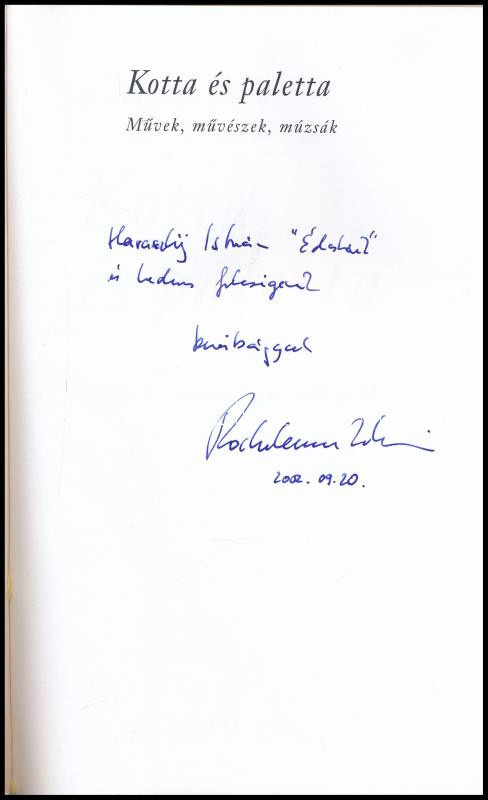 Kotta és paletta
Művek, művészek, múzsák
Haraszty István "Édeskének"
és kedves feleségének
barátsággal
Rockenbauer Zoltán
2002. 09. 20.